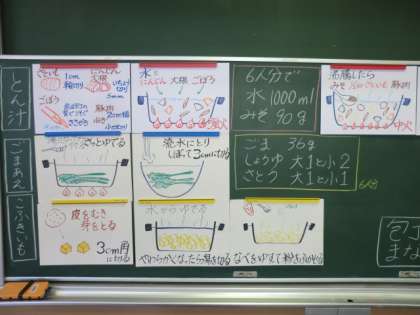 とん汁
さといも
1cm
輪切り
にんじん
大根
いちょう
切り
5mm
ごぼう
ささがき
豚肉
2cm幅
水に
にんじん 大根 ごぼう
強火
6人分で
水 1000ml
みそ 90g
沸騰したら
みそ
豚肉
中火
ごまあえ
さっとゆでる
流水にとり
しぼって3cmに切る
ごま 36g
しょうゆ 大1と小2
さとう 大1と小1
6人分
こふきいも
皮をむき
芽をとる
3cm角
に切る
水からゆでる
やわらかくなったら湯を切る
なべをゆすって粉をふかせる
包丁
まな